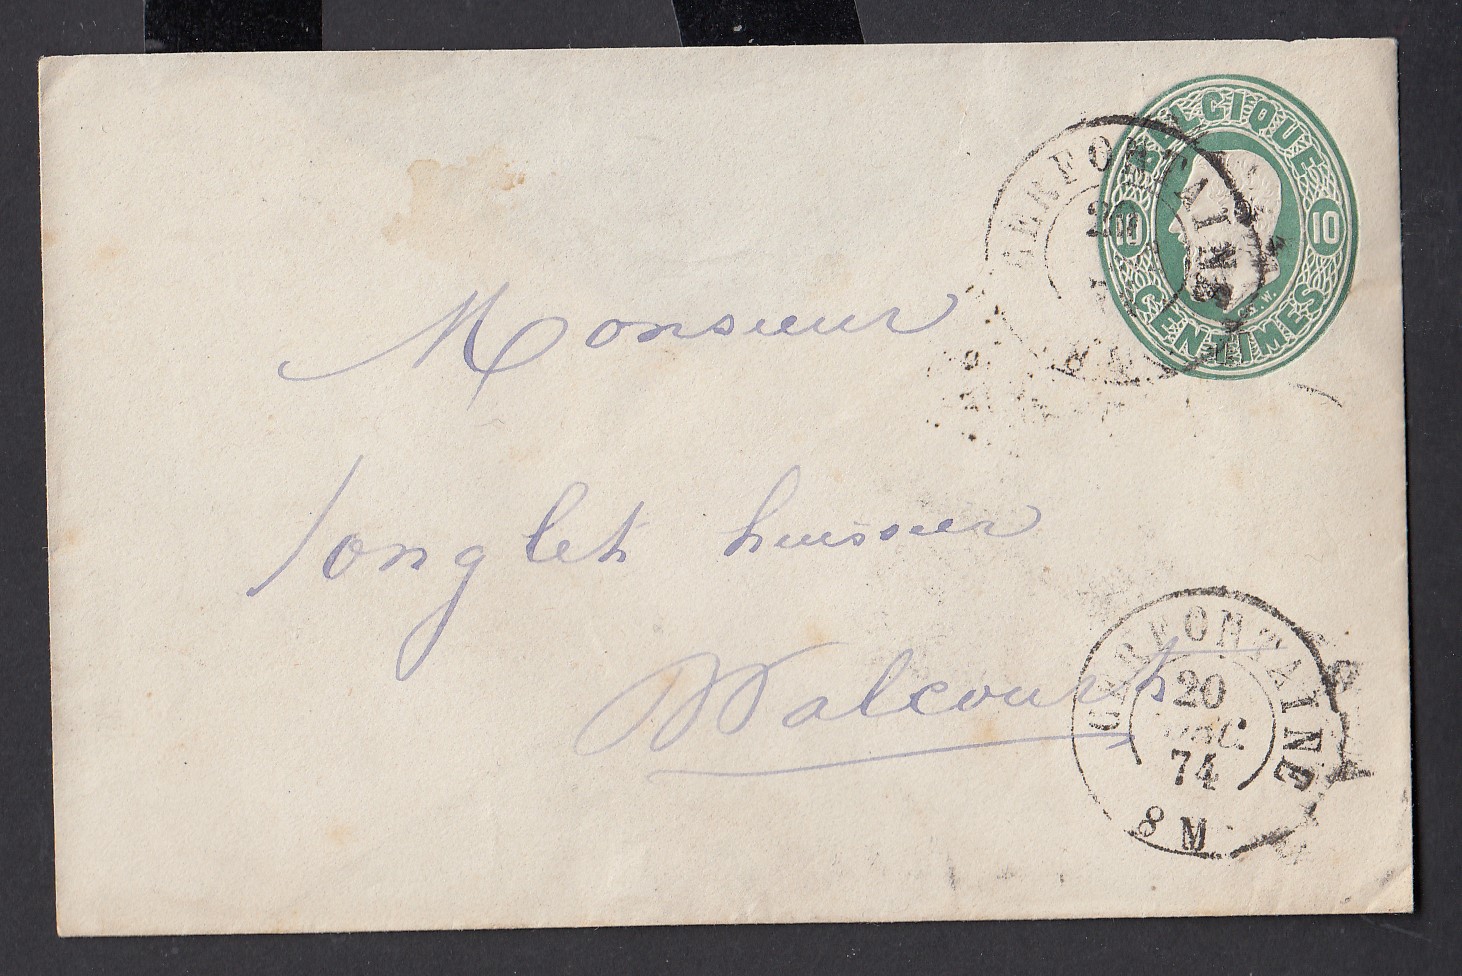 BELGIQUE
10 10
CENTIMES
CERFONTAINE
Monsieur
Jonglet huissier
Walcourt
CERFONTAINE
20
74
8 M